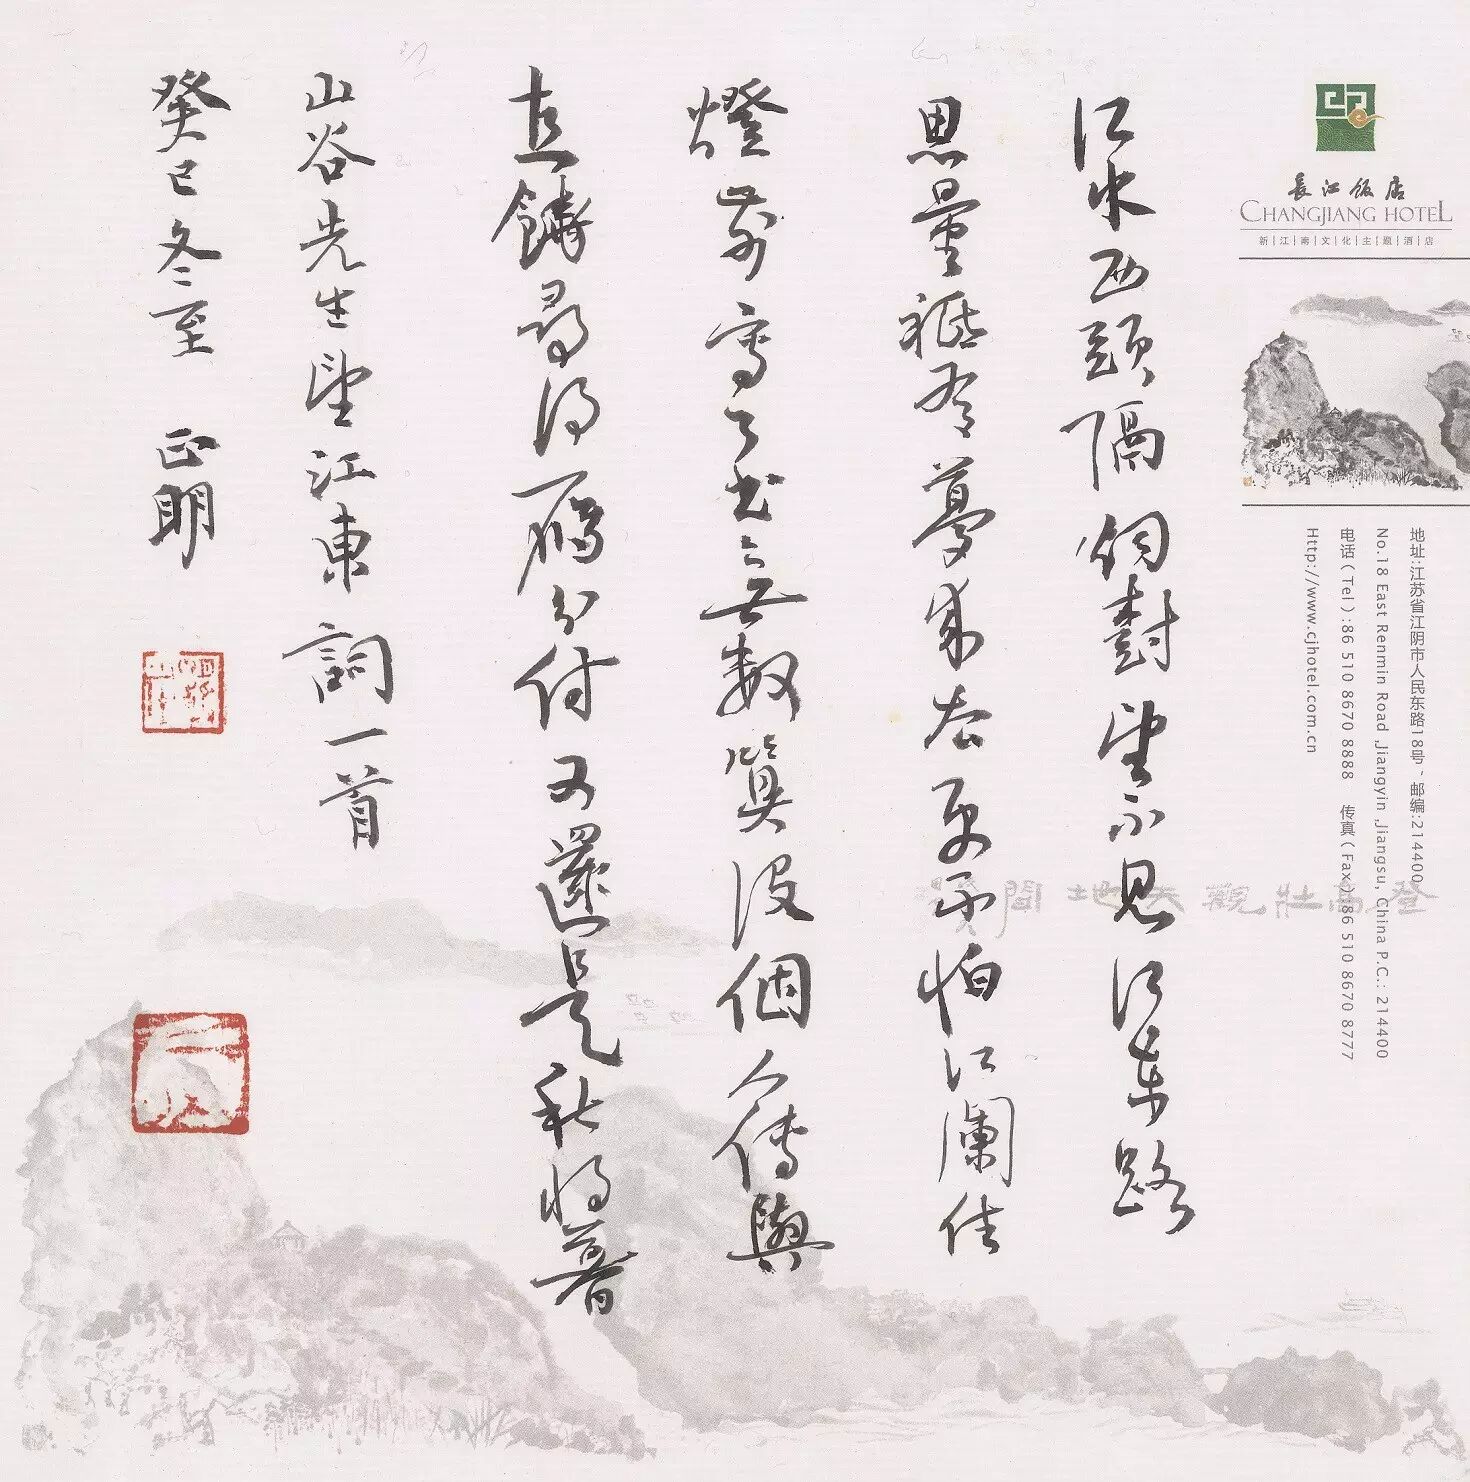 長江飯店
CHANGJIANG HOTEL
新江南文化主题酒店
地址:江苏省江阴市人民东路18号、邮编:214400
No.18 East Renmin Road ,Jiangyin ,Jiangsu, China P.C.: 214400
电话(Tel):86 510 8670 8888 传真(Fax):86 510 8670 8777
Http://www.cjhotel.com.cn
登高壯觀天地間
江水西頭隔烟樹望不見江東路
思量祗有夢來去更不怕江瀾住
燈前寫了書無數算沒個人傳與
直饒尋得雁分付又還是秋將暮
山谷先生望江東詞一首
癸巳冬至 正明